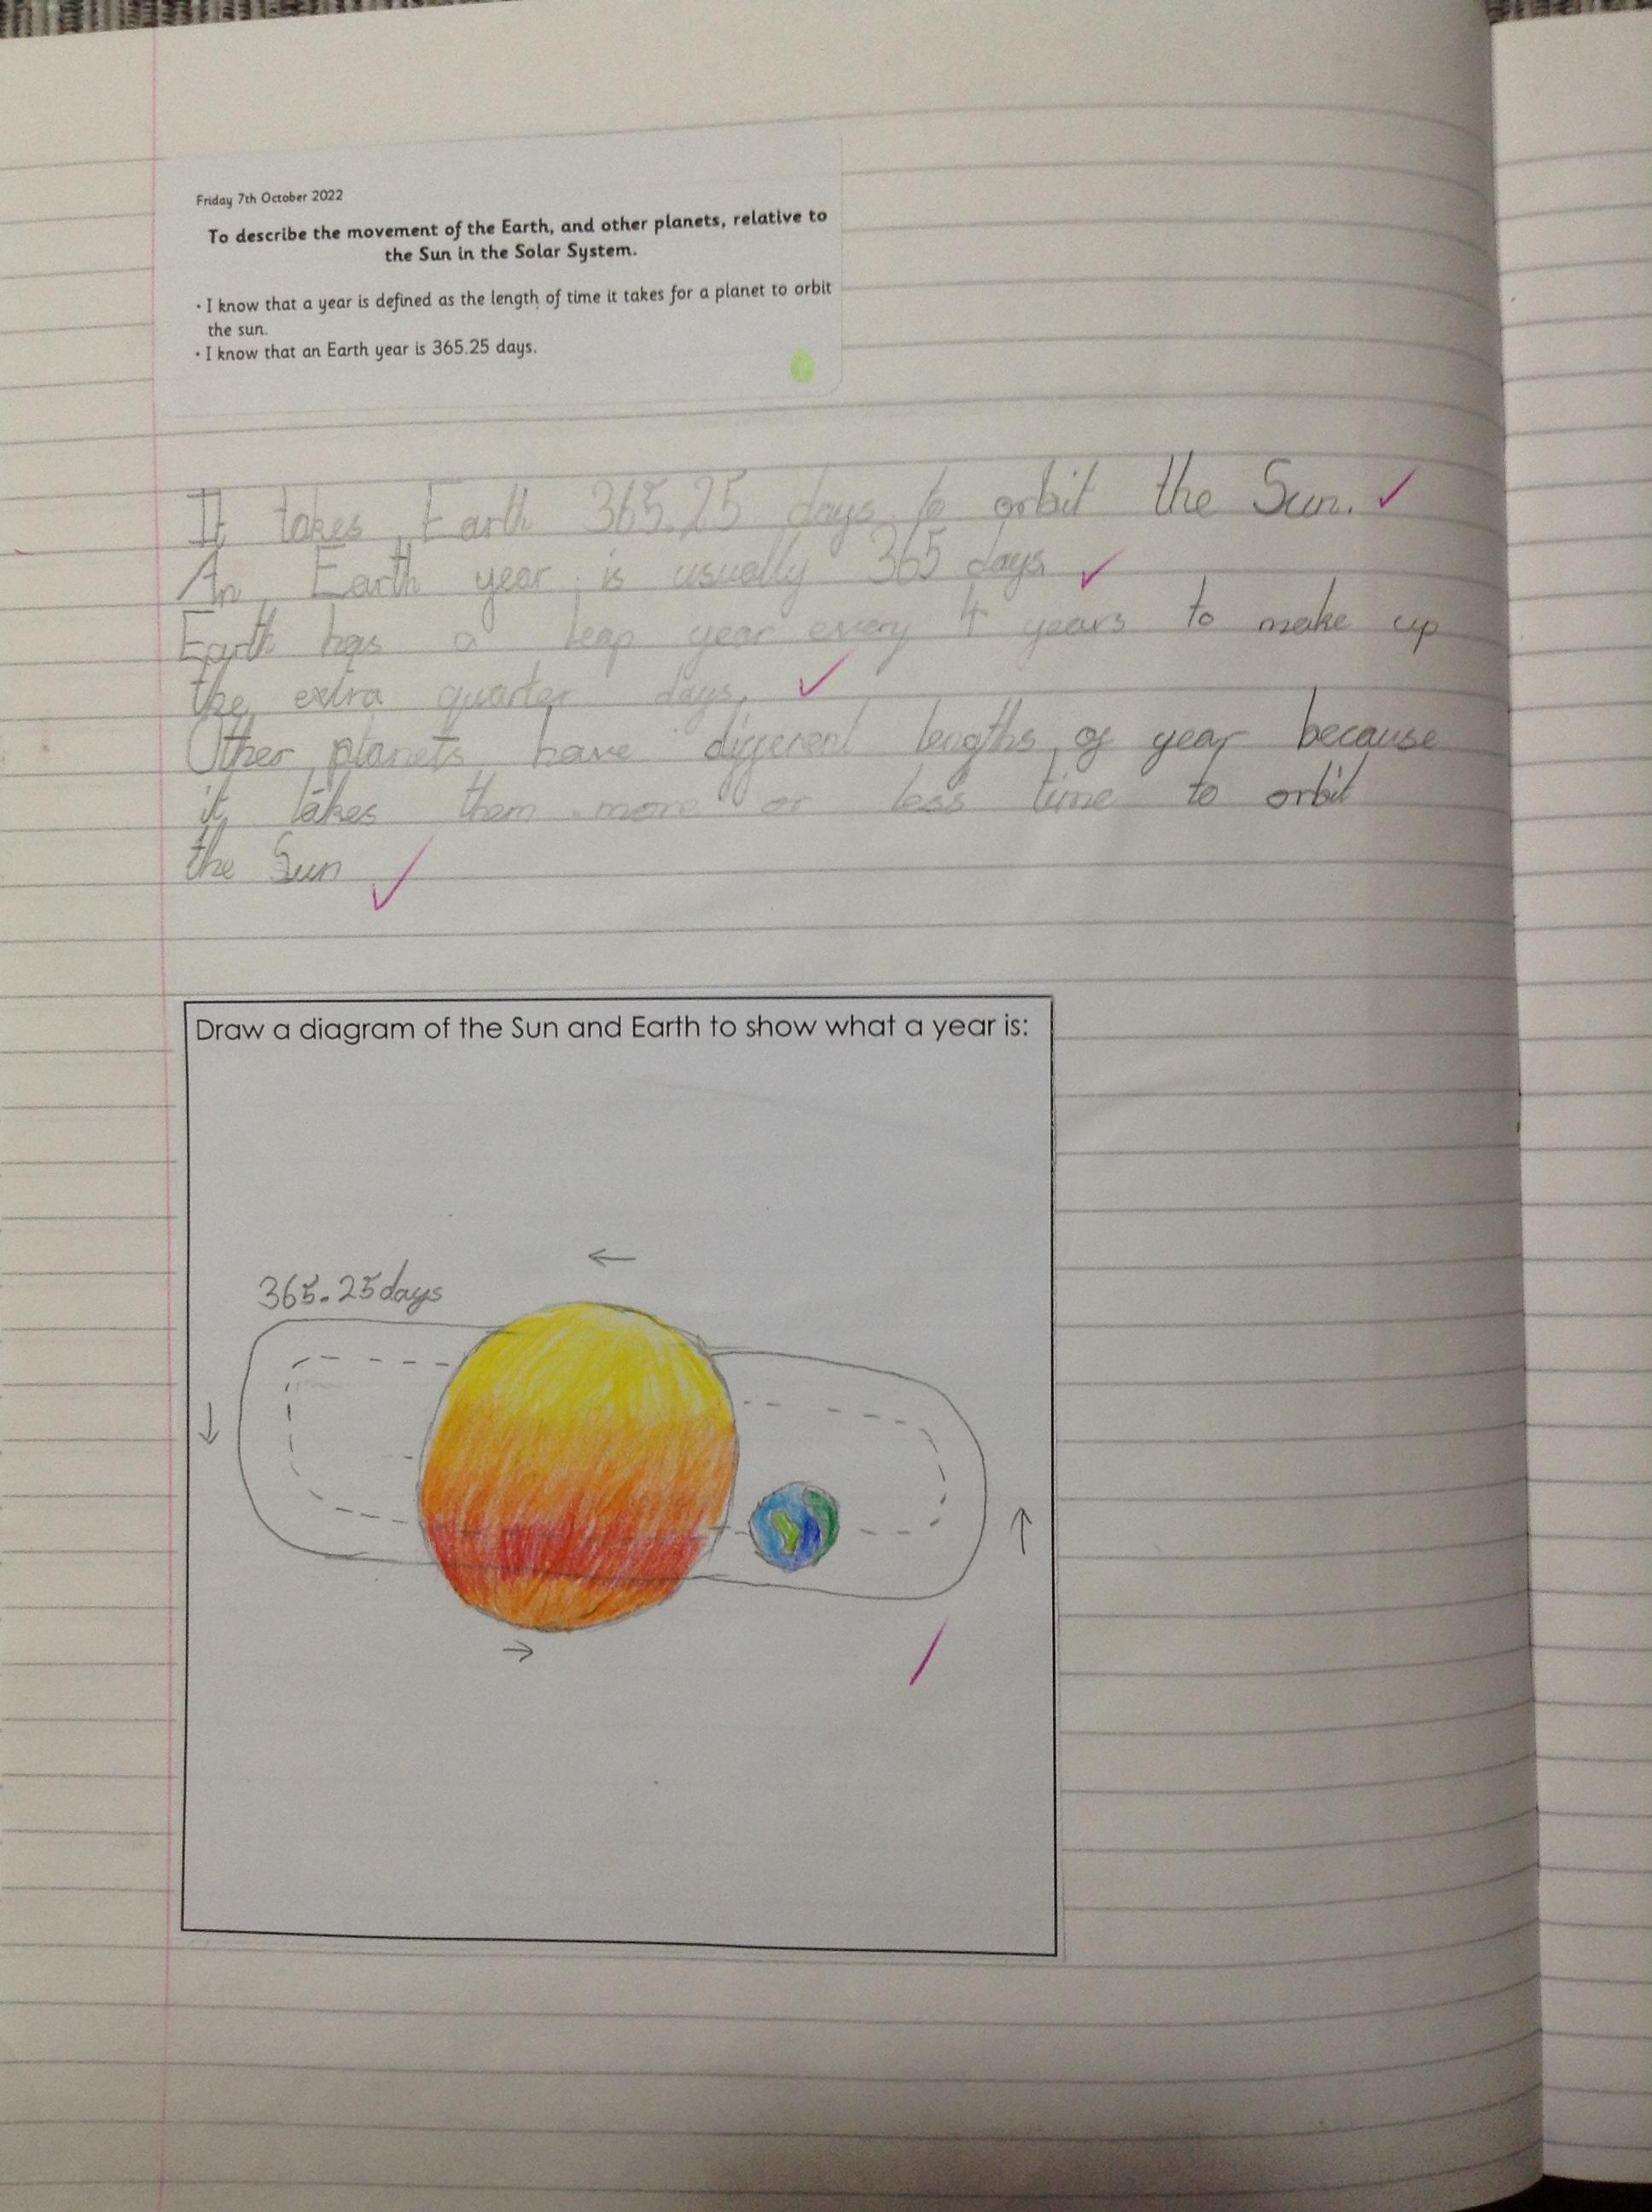 Friday 7th October 2022
To describe the movement of the Earth, and other planets, relative to
the Sun in the Solar System.
• I know that a year is defined as the length of time it takes for a planet to orbit
the sun.
• I know that an Earth year is 365.25 days.
It takes Earth 365.25 days to orbit the Sun.
An Earth year is usually 365 days
Earth has a leap year every 4 years to make up
the extra quarter days.
Other planets have different lengths of year because
it takes them more or less time to orbit
the Sun
Draw a diagram of the Sun and Earth to show what a year is:
365.25 days